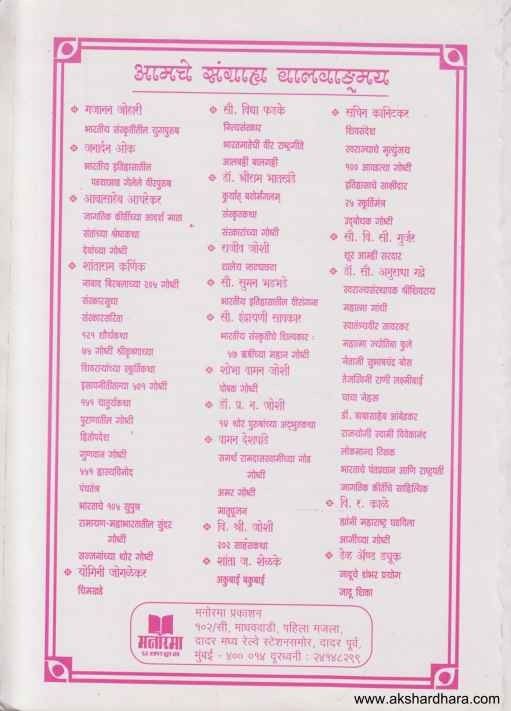 आमचे संग्राह्य बालवाङ्मय
❖ गजानन जोहरी
भारतीय संस्कृतीतील युगपुरुष
❖ जनार्दन ओक
भारतीय इतिहासातील
पराक्रमी वीरपुरुष
❖ आबासाहेब आपरेकर
जागतिक कीर्तीच्या आदर्श माता
संतांच्या श्रेष्ठकथा
देवांच्या गोष्टी
❖ शांताराम कर्णिक
नबाब बिरबलाच्या २०५ गोष्टी
संस्कारसुधा
संस्कारसरिता
१२१ शौर्यकथा
७५ गोष्टी श्रीकृष्णाच्या
शिवरायांच्या स्फूर्तिकथा
इसापनीतीतल्या ५०१ गोष्टी
१५१ चातुर्यकथा
पुराणातील गोष्टी
हितोपदेश
गुणवान गोष्टी
५५१ हास्यविनोद
पंचतंत्र
भारताचे १०५ सुपुत्र
रामायण-महाभारतातील सुंदर
गोष्टी
सज्जनांच्या थोर गोष्टी
❖ योगिनी जोगळेकर
चिमखडे
❖ सौ. विद्या फडके
नित्यसंस्कार
भारतमातेची वीर राष्ट्रगीते
आलबही बलगही
❖ डॉ. श्रीराम भातखंडे
कुर्यात् बटोर्मंगलम्
संस्कृतकथा
संस्कारांच्या गोष्टी
❖ राजीव जोशी
शालेय नाट्यछटा
❖ सौ. सुमन भडभडे
भारतीय इतिहासातील वीरांगना
❖ सौ. इंद्रायणी सावकार
भारतीय संस्कृतीचे शिल्पकार :
५७ ऋषींच्या महान गोष्टी
❖ शोभा वामन जोशी
पोषक गोष्टी
❖ डॉ. प्र. न. जोशी
१५ थोर पुरुषांच्या अद्भुतकथा
❖ वामन देशपांडे
समर्थ रामदासस्वामींच्या गोड
गोष्टी
अमर गोष्टी
मातृपूजन
❖ वि. श्री. जोशी
२०२ साहसकथा
❖ शांता ज. शेळके
अकुबाई बकुबाई
❖ सचिन कानिटकर
शिवसंदेश
स्वराज्याचे मृत्युंजय
१०० आवडत्या गोष्टी
इतिहासाचे साक्षीदार
२५ स्फूर्तिमंत्र
उद्बोधक गोष्टी
❖ सौ. वि. सी. गुर्जर
शूर आम्ही सरदार
❖ डॉ. सौ. अनुराधा गद्रे
स्वराज्यसंस्थापक श्रीशिवराय
महात्मा गांधी
स्वातंत्र्यवीर सावरकर
महात्मा ज्योतिबा फुले
नेताजी सुभाषचंद्र बोस
तेजस्विनी राणी लक्ष्मीबाई
चाचा नेहरू
डॉ. बाबासाहेब आंबेडकर
राजयोगी स्वामी विवेकानंद
लोकमान्य टिळक
भारताचे पंतप्रधान आणि राष्ट्रपती
जागतिक कीर्तीचे साहित्यिक
❖ वि. र. काळे
ह्यांनी महाराष्ट्र घडविला
आजीच्या गोष्टी
❖ डेव्ह अँण्ड ड्यूक
जादूचे शंभर प्रयोग
जादू शिका
मनोरमा
मनोरमा प्रकाशन
१०२/सी, माधववाडी, पहिला मजला,
दादर मध्य रेल्वे स्टेशनसमोर, दादर पूर्व,
मुंबई - ४०० ०१४ दूरध्वनी : २४१४८२९९
www.akshardhara.com